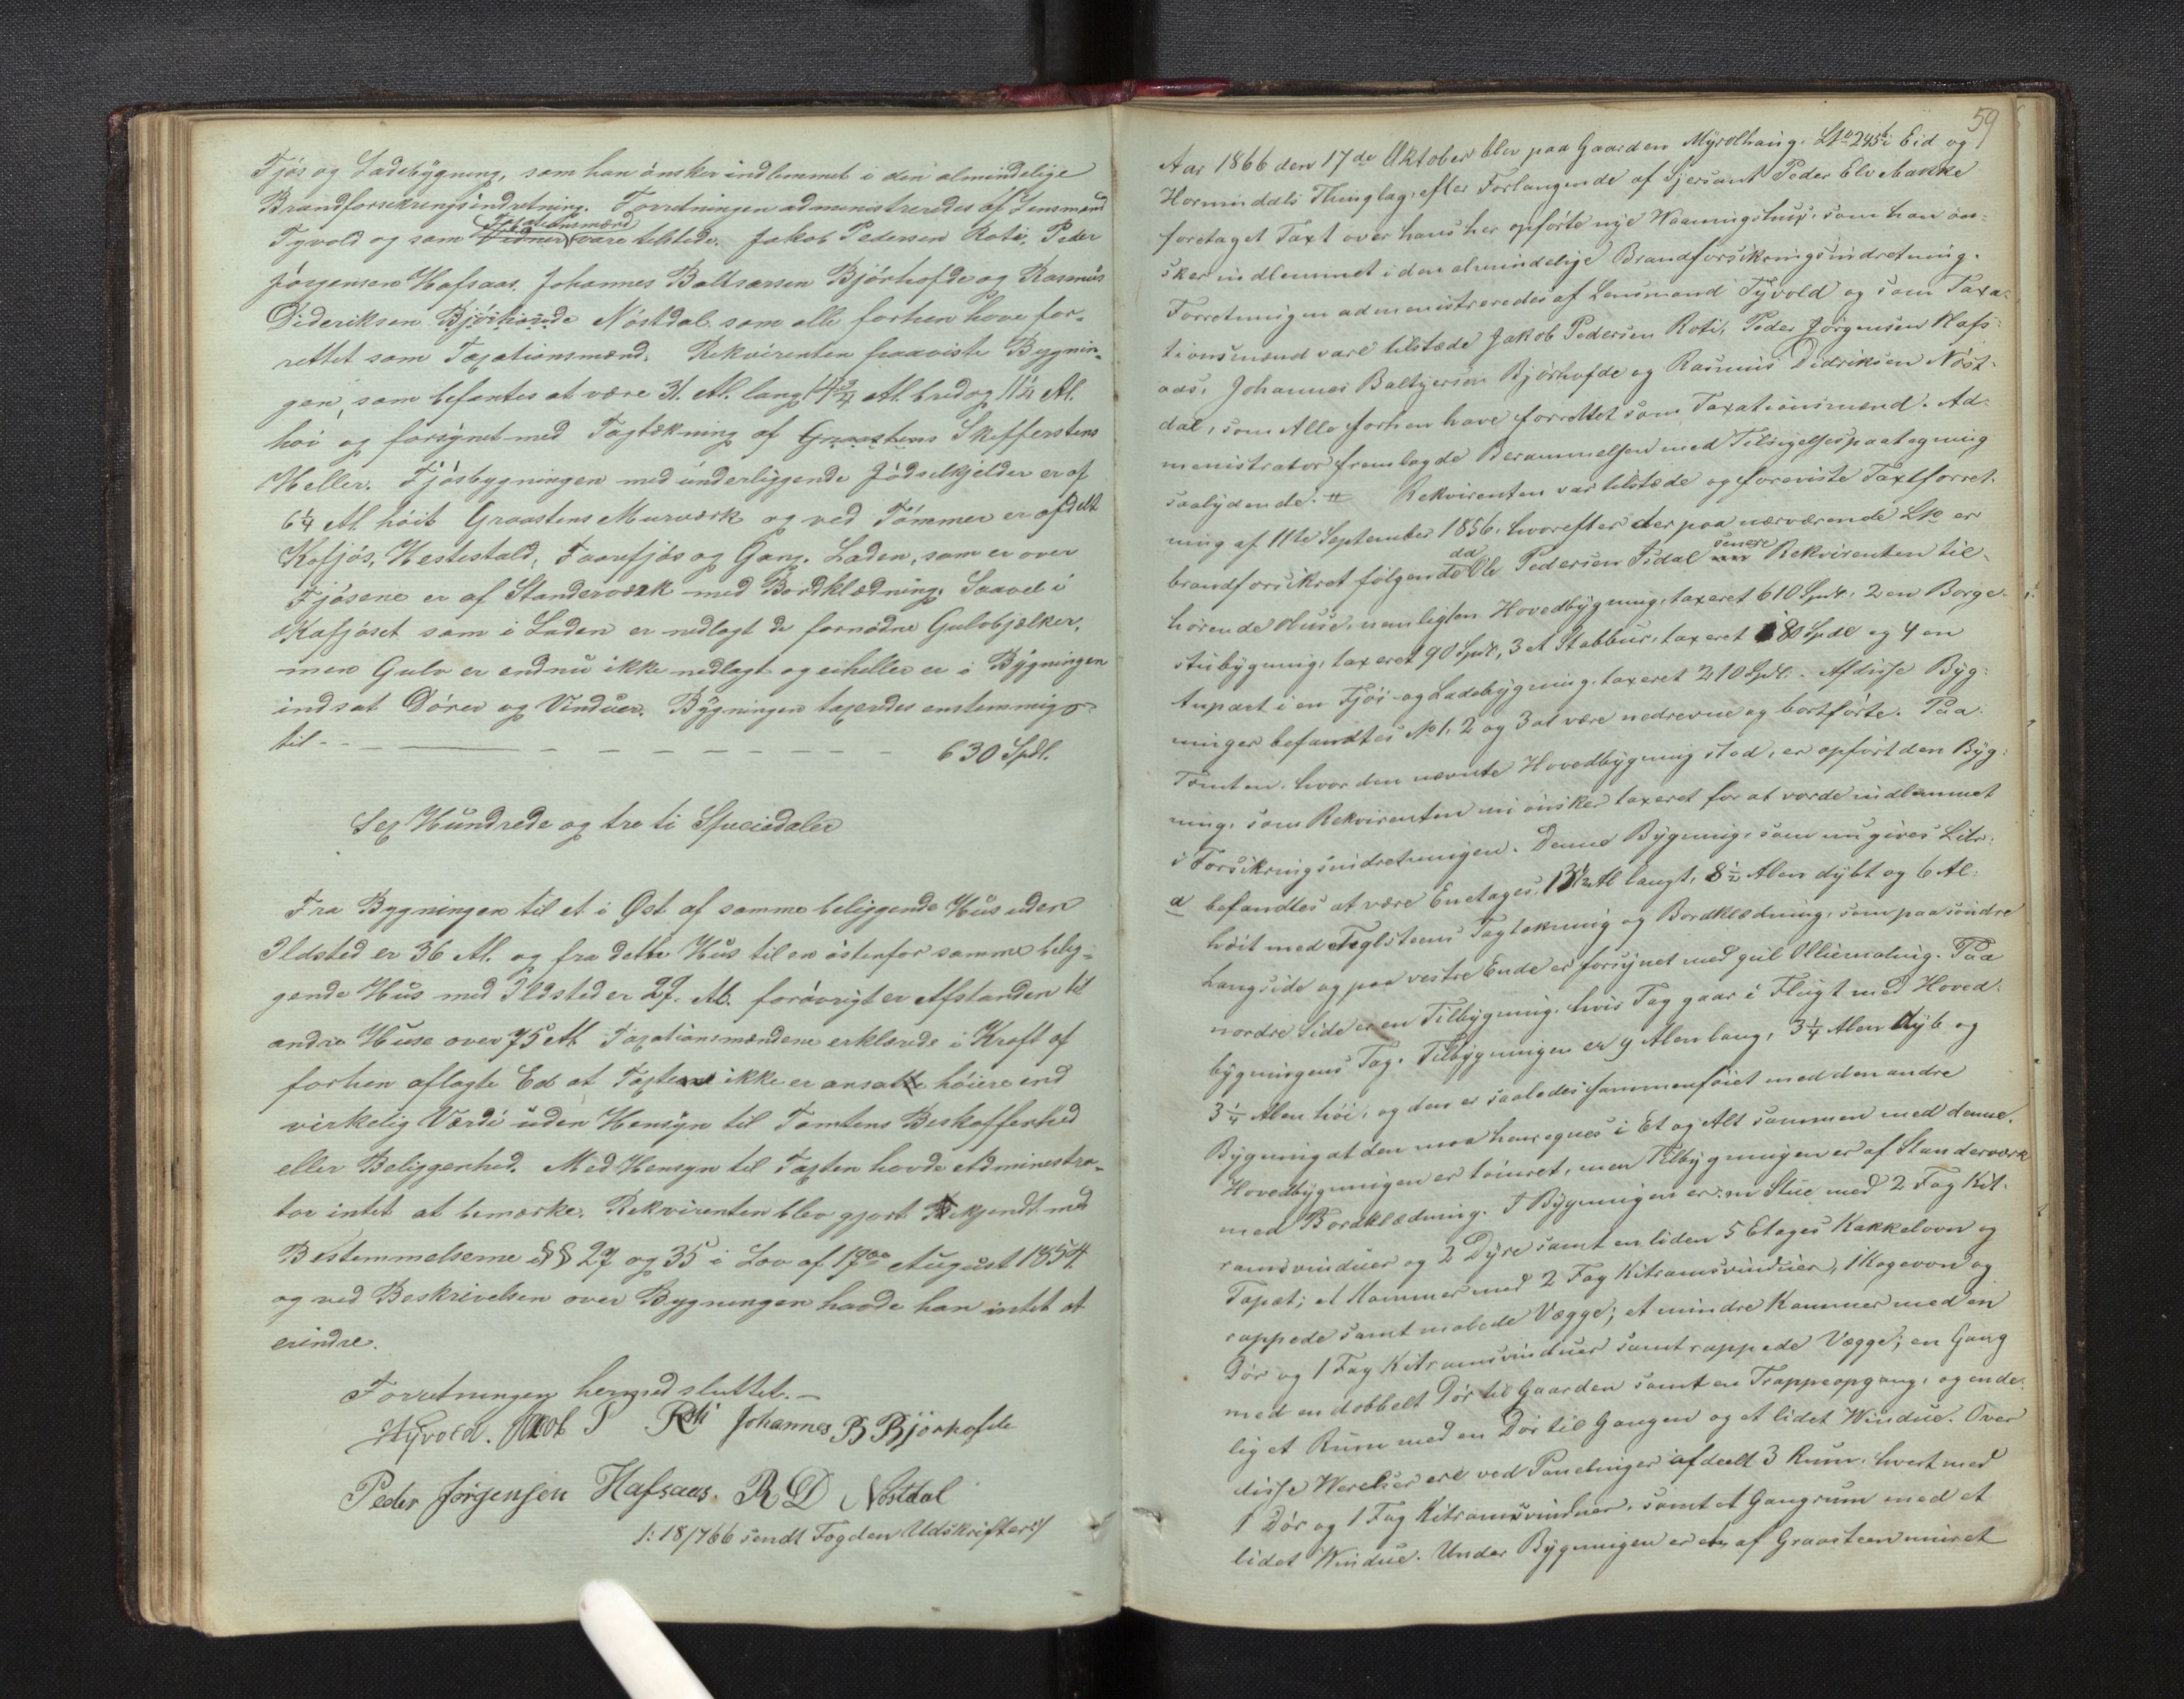 Fjøs og Ladebygning, som han ønsker indlemmet i den almindelige
Brandforsikringsindretning. Forretningen administreredes af Lensmand
Tyvold og som Vidner Taxationsmænd vare tilstede. Jakob Pedersen Roti, Peder
Jørgensen Hafsaas, Johannes Baltsersen Bjørhofde og Rasmus
Dideriksen Nøstdal som alle forhen have for-
rettet som Taxationsmænd. Rekvirenten paaviste Bygnin-
gen, som befantes at være 31 Al. lang 14 3/4 Al. bred og 11 1/2 Al.
høi og forsynet med Tagtækning af Graastens Skiffersteens
Heller. Fjøsbygningen med underliggende Gjødselkjelder er af
6 1/4 Al. høit Graastens Murværk og ved Tømmer er afdelt
Kofjøs, Hestestald, Faarefjøs og Gang. Laden, som er over
Fjøsene er af Standerværk med Bordklædning. Saavel i
Kofjøset som i Laden er nedlagt de fornødne Gulvbjælker,
men Gulv er endnu ikke nedlagt og eiheller er i Bygningen
indsat Dører og Vinduer. Bygningen taxeredes enstemmig
til - - - 630 Spdl.
Sex Hundrede og tre ti Speciedaler
Fra Bygningen til et i Øst af samme beliggende Hus uden
Ildsted er 36 Al. og fra dette Hus til en østenfor samme belig-
gende Hus med Ildsted er 27 Al. forøvrigt er Afstanden til
andre Huse over 75 Al. Taxationsmændene erklærede i Kraft af
forhen aflagte Ed at Taxten ikke er ansatte høiere end
virkelig Værdi uden Hensyn til Tomtens Beskaffenhed
eller Beliggenhed. Med Hensyn til Taxten havde Administra-
tor intet at bemærke. Rekvirenten blev gjort bekjendt med
Bestemmelserne §§ 27 og 35 i Lov af 19de August 1854
og ved Beskrivelsen over Bygningen havde han intet at
erindre.
Forretningen hermed sluttet. —
HTyvold. Jacob P Roti Johannes B Bjørhofde
Peder Jørgensen Hafsaas. R D Nøstdal
/: 18/7 66 sendt Fogden Udskrifter :/
59
Aar 1866 den 17de Oktober blev paa Gaarden Myrolhaug, Lno 245b i Eid og
Hornindals Thinglag, efter Forlangende af Sjersant Peder Elvebakke
foretaget Taxt over hans her opførte nye Vaaningshus, som han øn-
sker indlemmet i den almindelige Brandforsikringsindretning.
Forretningen administreredes af Lensmand Tyvold og som Taxa-
tionsmænd vare tilstæde Jakob Pedersen Roti, Peder Jørgensen Hafs-
aas, Johannes Baltzersen Bjørhofde og Rasmus Didriksen Nøst-
dal, som Alle forhen have forrettet som Taxationsmænd. Ad-
ministrator fremlagde Berammelsen med Tilsigelsespaategning
saalydende. # Rekvirenten var tilstæde og foreviste Taxtforret-
ning af 11te September 1856, hvorefter der paa nærværende Lno er
brandforsikret følgende da Ole Pedersen Isdal senere Rekvirenten til-
hørende Huse, nemlig 1 en Hovedbygning, taxeret 610 Spdl, 2 en Borge-
stubygning, taxeret 90 Spdl, 3 et Stabbur, taxeret 80 Spdl og 4 en
Anpart i en Fjøs- og Ladebygning, taxeret 210 Spdl. Af disse Byg-
ninger befandtes No 1, 2 og 3 at være nedrevne og bortførte. Paa
Tomten, hvor den nævnte Hovedbygning stod, er opført den Byg-
ning, som Rekvirenten nu ønsker taxeret for at vorde indlemmet
i Forsikringsindretningen. Denne Bygning, som nu gives Litr.
a befandtes at være Enetages, 13 1/2 Al langt, 8 1/2 Alen dybt og 6 Al.
høit med Teglsteens Tagtækning og Bordklædning, som paa søndre
Langside og paa vestre Ende er forsynet med gul Olliemaling. Paa
nordre Side er en Tilbygning, hvis Tag gaar i Flugt med Hoved-
bygningens Tag. Tilbygningen er 9 Alen lang, 3 1/4 Alen dyb og
3 1/4 Alen høi, og den er saaledes sammenføiet med den andre
Bygning at den maa henregnes i Et og Alt sammen med denne.
Hovedbygningen er tømret, men Tilbygningen er af Standerværk
med Bordklædning. I Bygningen er: en Stue med 2 Fag Kit-
ramsvinduer og 2 Døre samt en liden 5 Etages Kakkelovn og
Tapæt; et Kammer med 2 Fag Kitramsvinduer, 1 Kogeovn og
rappede samt malede Vægge; et mindre Kammer med en
Dør og 1 Fag Kitramsvinduer samt rappede Vægge; en Gang
med en dobbelt Dør til Gaarden samt en Trappeopgang, og ende-
lig et Rum med en Dør til Gangen og et lidet Windue. Over
disse Værelser ere ved Panelinger afdeelt 3 Rum, hvert med
1 Dør og 1 Fag Kitramsvinduer, samt et Gangrum med et
lidet Windue. Under Bygningen er en af Graasteen muret